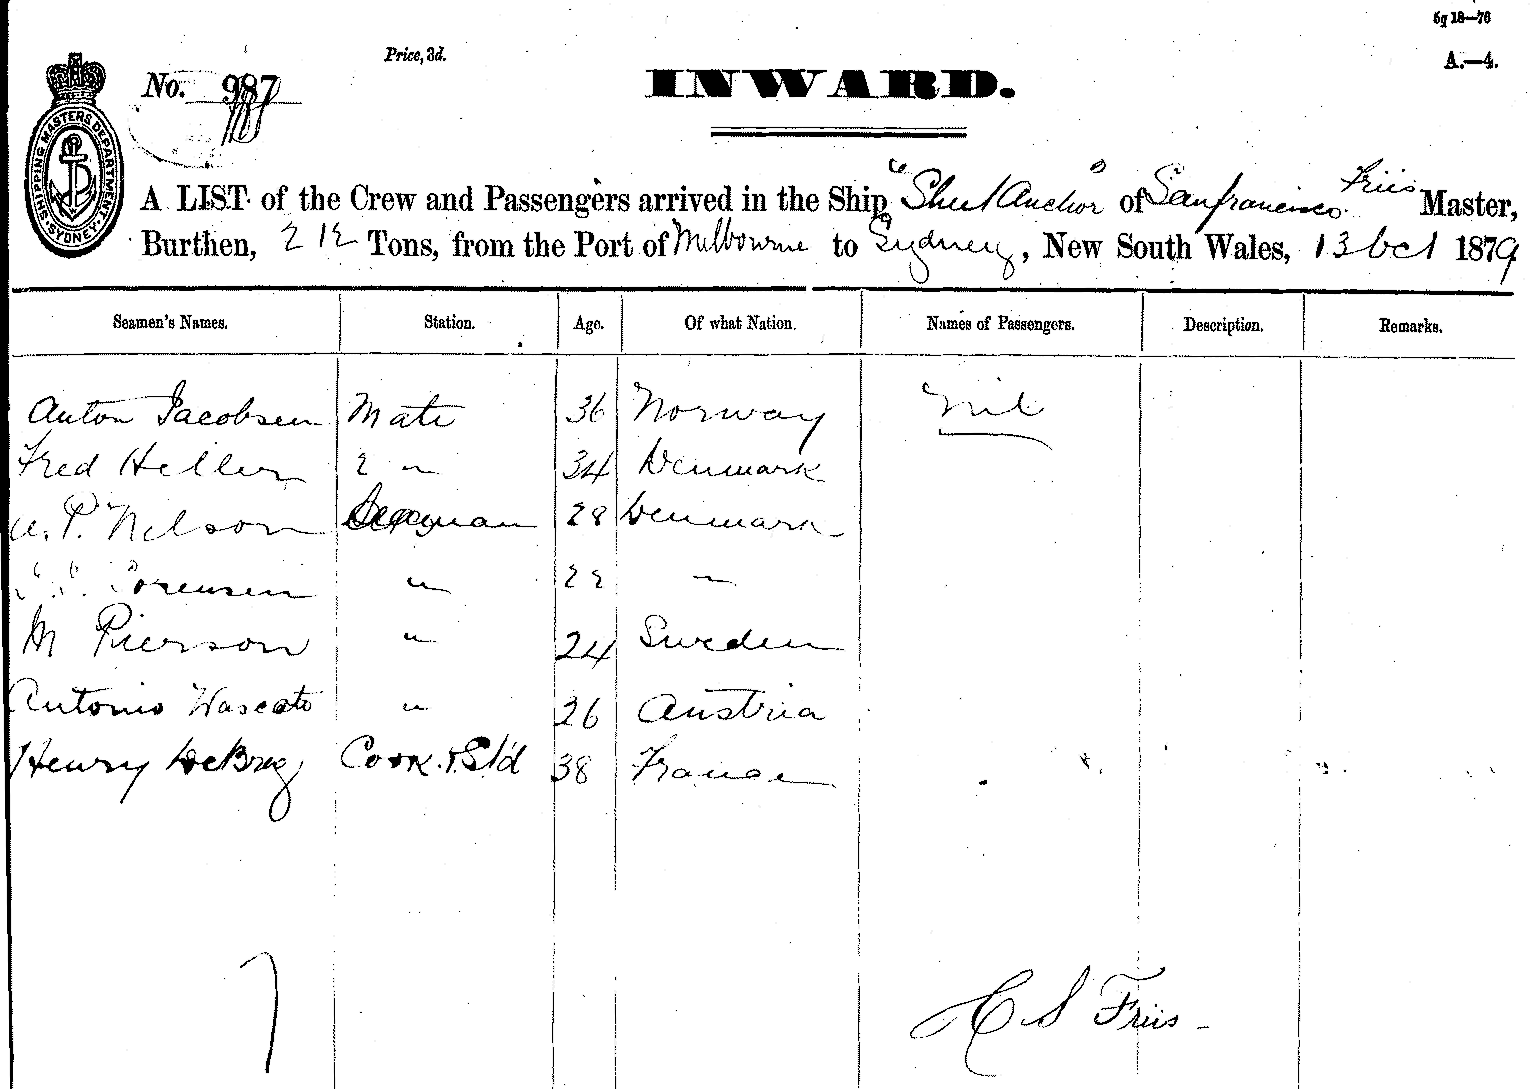 6g 18—76
Price, 3d.
A.—4.
No. 987
INWARD.
SHIPPING MASTERS DEPARTMENT
SYDNEY
A LIST of the Crew and Passengers arrived in the Ship "Sheet Anchor" of Sanfrancisco Friis Master,
Burthen, 212 Tons, from the Port of Melbourne to Sydney, New South Wales, 13 Oct 1879
Seamen's Names. Station. Age. Of what Nation. Names of Passengers. Description. Remarks.
Anton Jacobsen Mate 36 Norway Nil
Fred Heller 2 " 34 Denmark
P. Nelson Seaman 28 Denmark
Sorensen " 22 "
M Pierson " 24 Sweden
Antonio 26 Austria
Henry 38 Cook & Std France
7
H S Friis